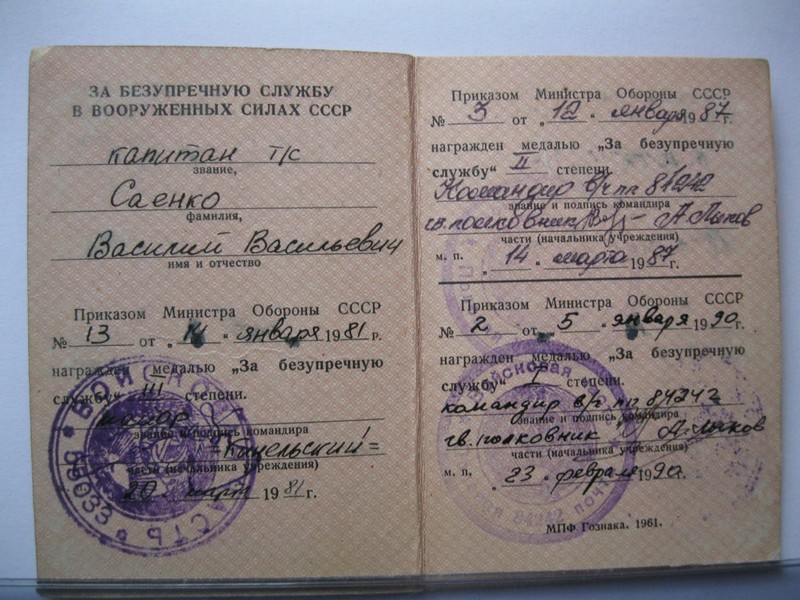 ЗА БЕЗУПРЕЧНУЮ СЛУЖБУ
В ВООРУЖЕННЫХ СИЛАХ СССР
капитан т/с
звание,
Саенко
фамилия,
Василий Васильевич
имя и отчество
Приказом Министра Обороны СССР
№ 13 от „14" января 1981 г.
награжден медалью „За безупречную
службу" III степени.
майор
звание и подпись командира
части (начальника учреждения)
20 март 1981 г.
ВОЙСКОВАЯ ЧАСТЬ
Приказом Министра Обороны СССР
№ 3 от „12" января 1987 г.
награжден медалью „За безупречную
службу" II степени.
Командир в/ч пп 84242
звание и подпись командира
гв. полковник А. Лыков
части (начальника учреждения)
м. п. „14" марта 1987 г.
Приказом Министра Обороны СССР
№ 2 от „5" января 1990 г.
награжден медалью „За безупречную
службу" I степени.
командир в/ч пп 84242
звание и подпись командира
гв. полковник А. Лыков
части (начальника учреждения)
м. п. „23" февраля 1990 г.
Войсковая
84242
МПФ Гознака. 1961.